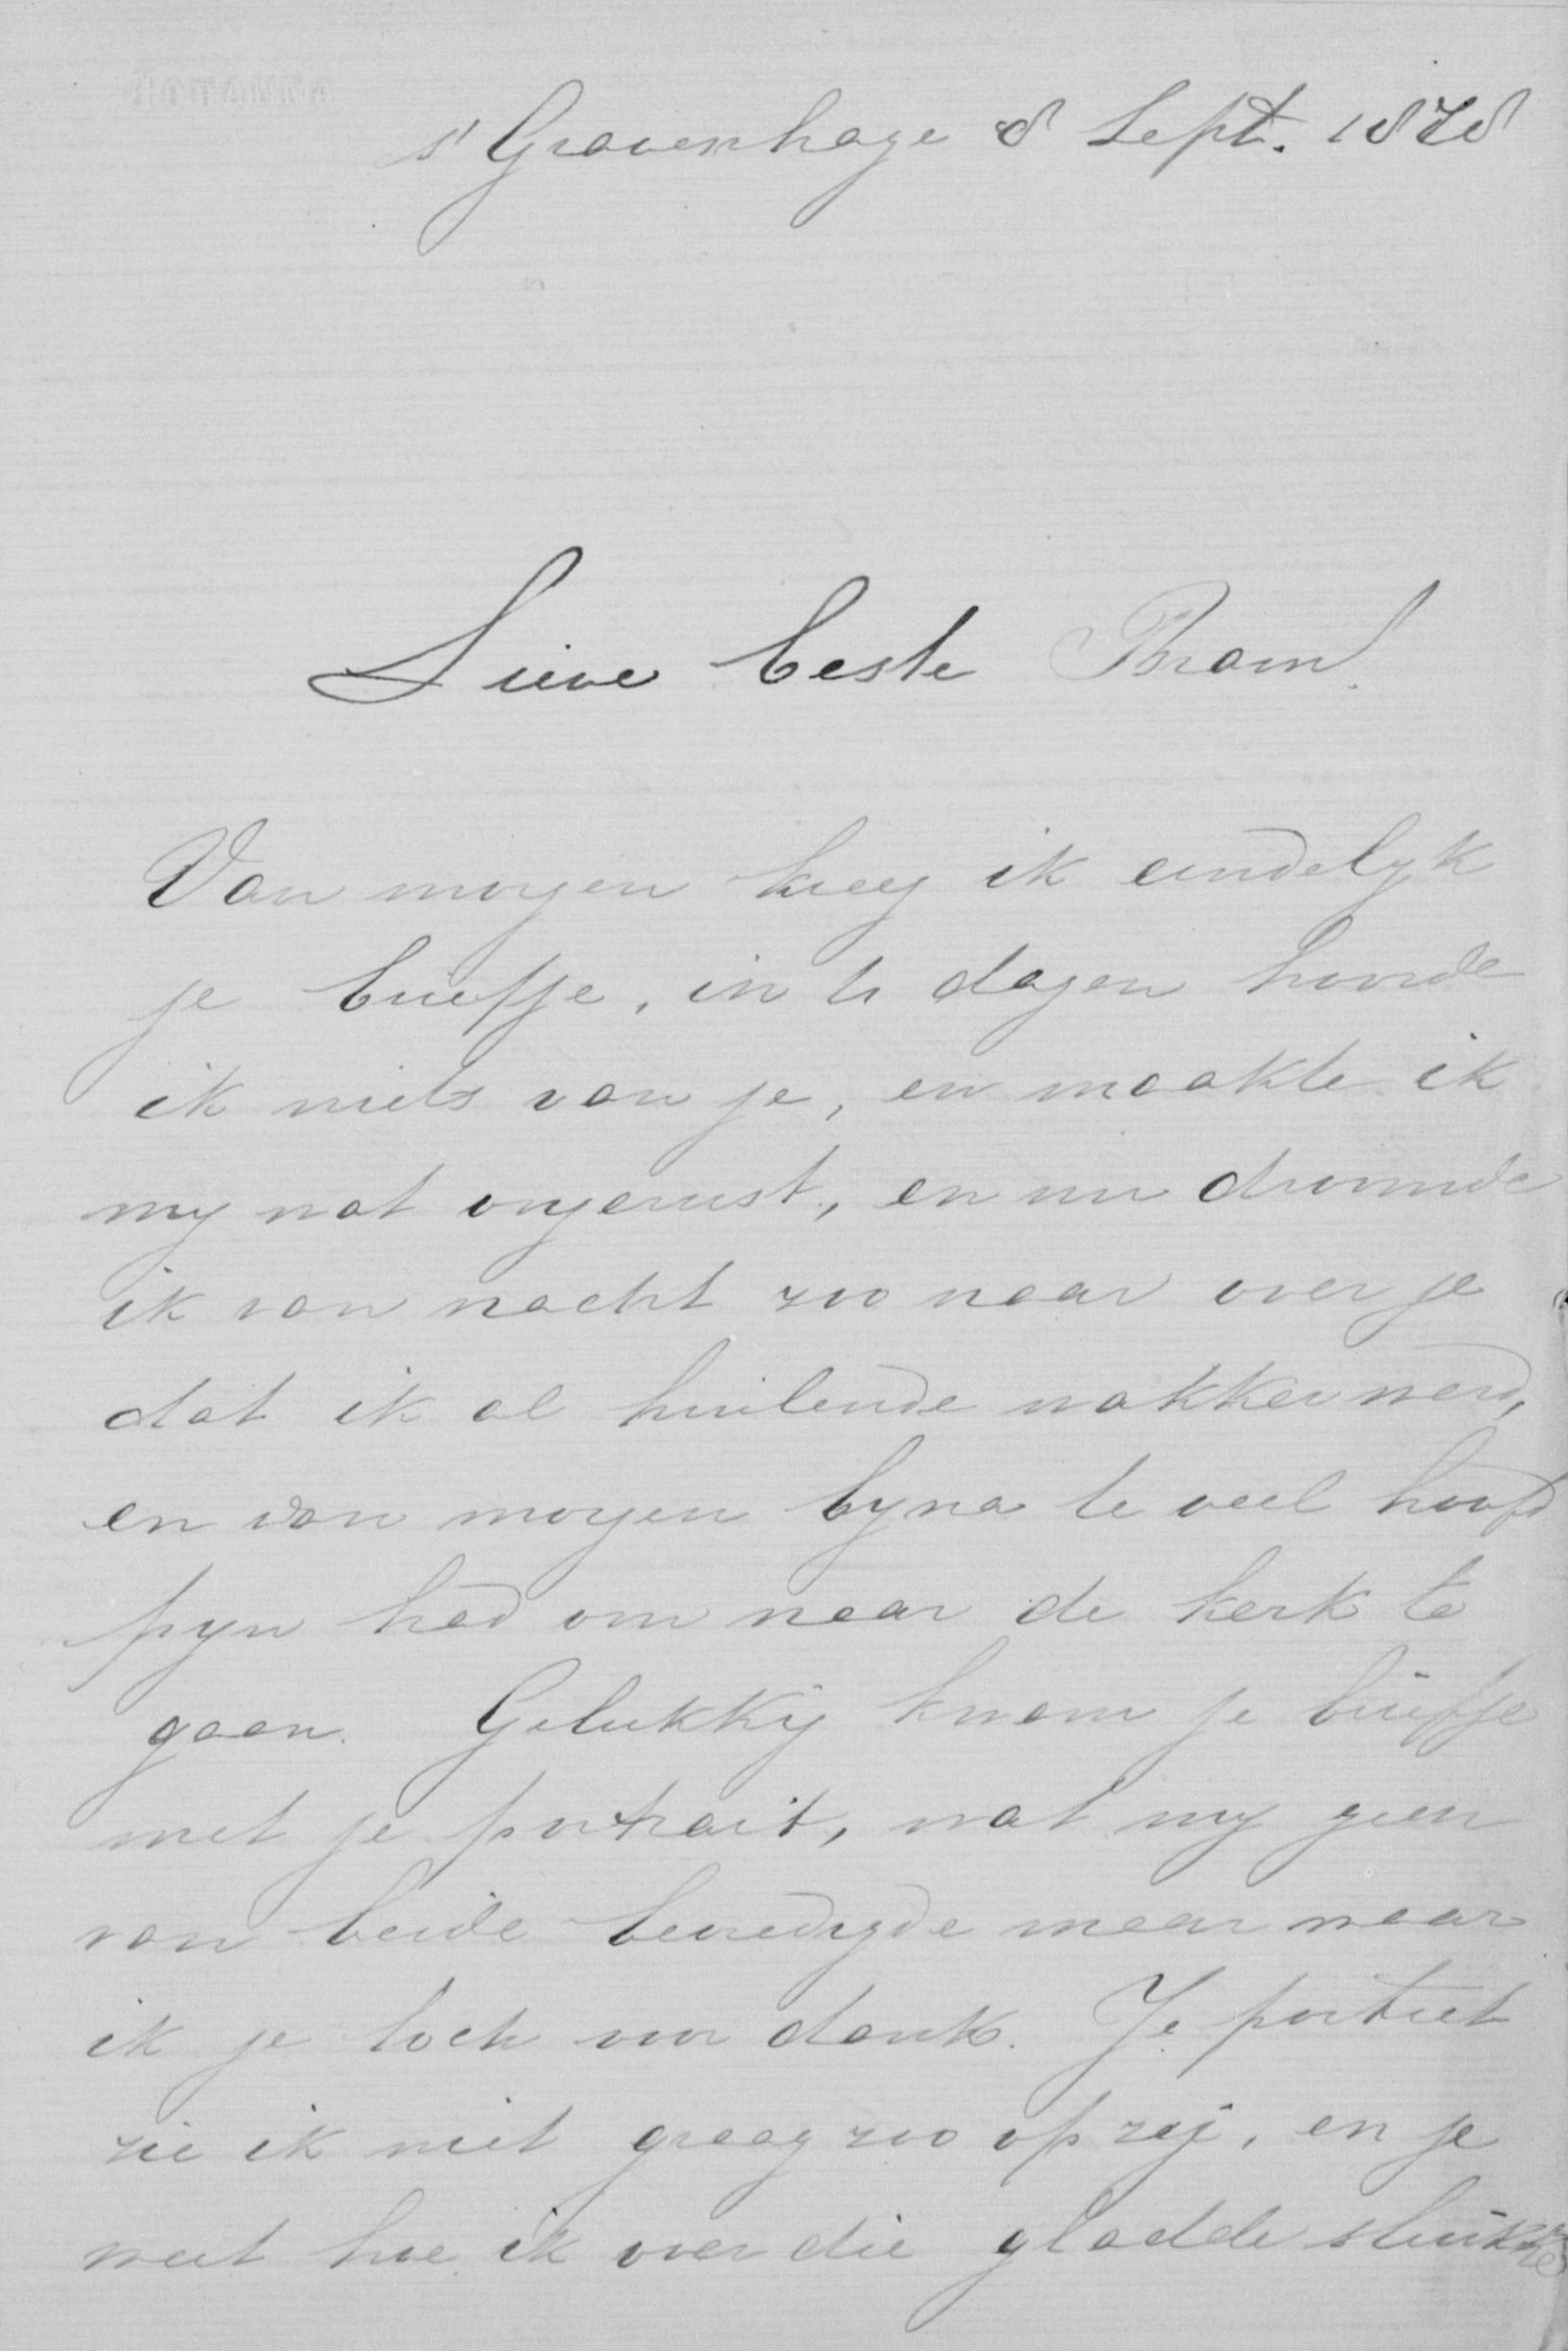 s' Gravenhage 8 Sept. 1878
Lieve beste Bram!
Van morgen kreeg ik eindelyk
je briefje, in dagen hoorde
ik niets van je, en maakte ik
my wat ongerust, en nu droomde
ik van nacht zoo naar over je
dat ik al huilende wakker werd,
en van morgen byna te veel hoofd
pyn had om naar de kerk te
gaan. Gelukkig kwam je briefje
met je portrait, wat my geen
van beide bevredigde maar waar
ik je toch voor dank. Je portret
zie ik niet graag zoo op zej, en je
weet hoe ik over die gladde sluike